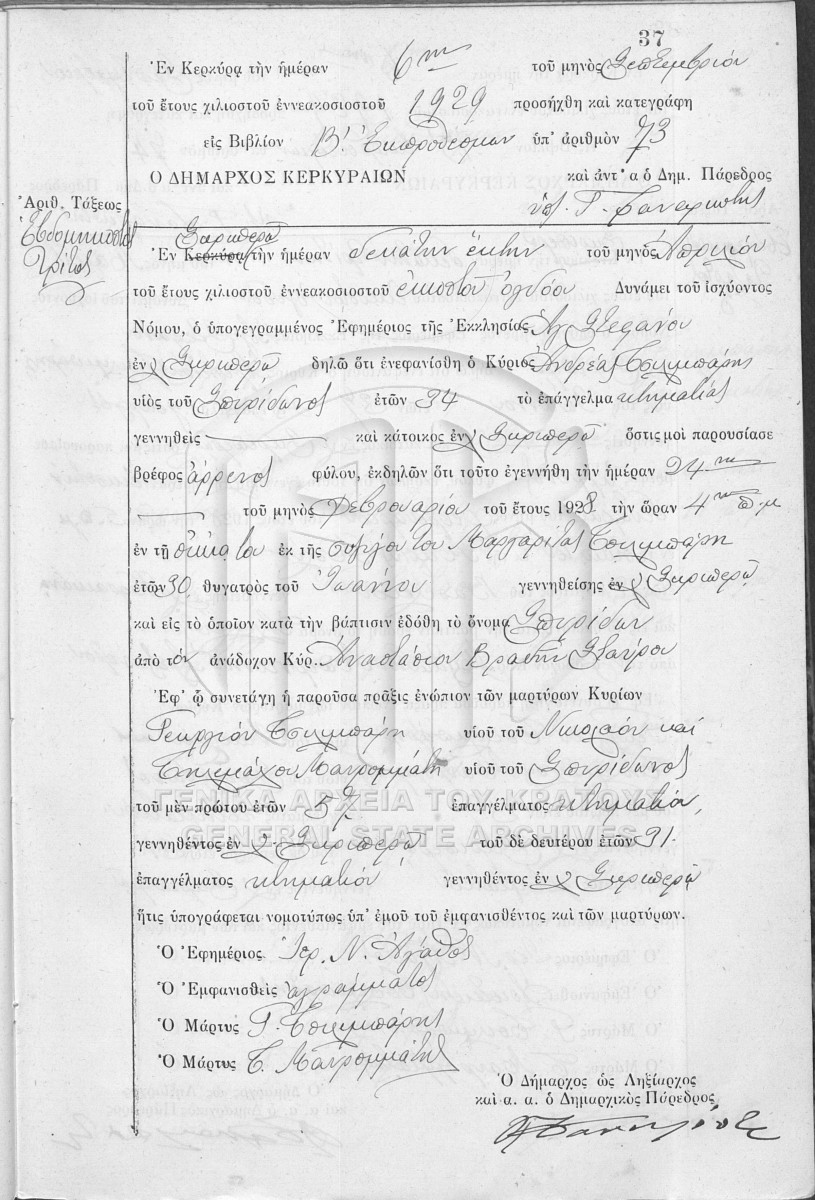 37
Ἐν Κερκύρᾳ τὴν ἡμέραν 6ην τοῦ μηνὸς Σεπτεμβρίου
τοῦ ἔτους χιλιοστοῦ ἐννεακοσιοστοῦ 1929 προσήχθη καὶ κατεγράφη
εἰς Βιβλίον Β! Ἐκπροθέσμων ὑπ' ἀριθμὸν 73
Ο ΔΗΜΑΡΧΟΣ ΚΕΡΚΥΡΑΙΩΝ καὶ ἀντ' α ὁ Δημ. Πάρεδρος
Ἀριθ. Τάξεως
Ἑβδομηκοστὸς
τρίτος
Σκριπερῷ
Ἐν Κερκύρᾳ τὴν ἡμέραν δεκάτην ἕκτην τοῦ μηνὸς Ἀπριλίου
τοῦ ἔτους χιλιοστοῦ ἐννεακοσιοστοῦ εἰκοστοῦ ὀγδόου Δυνάμει τοῦ ἰσχύοντος
Νόμου, ὁ ὑπογεγραμμένος Ἐφημέριος τῆς Ἐκκλησίας Ἁγ Στεφάνου
ἐν Σκριπερῷ δηλῶ ὅτι ἐνεφανίσθη ὁ Κύριος Ἀνδρέας Τσιλιμπάρης
υἱὸς τοῦ Σπυρίδωνος ἐτῶν 34 τὸ ἐπάγγελμα κτηματίας
γεννηθεὶς καὶ κάτοικος ἐν Σκριπερῷ ὅστις μοὶ παρουσίασε
βρέφος ἄρρενος φύλου, ἐκδηλῶν ὅτι τοῦτο ἐγεννήθη τὴν ἡμέραν 24ην
τοῦ μηνὸς Φεβρουαρίου τοῦ ἔτους 1928 τὴν ὥραν 4ην π.μ
ἐν τῇ οἰκίᾳ του ἐκ τῆς συζύγου του Μαργαρίτας Τσιλιμπάρη
ἐτῶν 30 θυγατρὸς τοῦ Ἰωάννου γεννηθείσης ἐν Σκριπερῷ
καὶ εἰς τὸ ὁποῖον κατὰ τὴν βάπτισιν ἐδόθη τὸ ὄνομα Σπυρίδων
ἀπὸ τὸν ἀνάδοχον Κύρ. Ἀναστάσιον Βραδῆν Σταύρου
Ἐφ' ᾧ συνετάγη ἡ παροῦσα πρᾶξις ἐνώπιον τῶν μαρτύρων Κυρίων
Γεωργίου Τσιλιμπάρη υἱοῦ τοῦ Νικολάου καὶ
Τηλεμάχου Μαυρομμάτη υἱοῦ τοῦ Σπυρίδωνος
ΓΕΝΙΚΑ ΑΡΧΕΙΑ ΤΟΥ ΚΡΑΤΟΥΣ
τοῦ μὲν πρώτου ἐτῶν ἐπαγγέλματος κτηματίου,
GENERAL STATE ARCHIVES
γεννηθέντος ἐν Σκριπερῷ τοῦ δὲ δευτέρου ἐτῶν 31.
ἐπαγγέλματος κτηματίου γεννηθέντος ἐν Σκριπερῷ
ἥτις ὑπογράφεται νομοτύπως ὑπ' ἐμοῦ τοῦ ἐμφανισθέντος καὶ τῶν μαρτύρων.
Ὁ Ἐφημέριος Ἱερ. Ν. Ἀγάθος
Ὁ Ἐμφανισθεὶς ἀγράμματος
Ὁ Μάρτυς Γ. Τσιλιμπάρης
Ὁ Μάρτυς Τ. Μαυρομμάτης
Ὁ Δήμαρχος ὡς Ληξίαρχος
καὶ α. α. ὁ Δημαρχικὸς Πάρεδρος